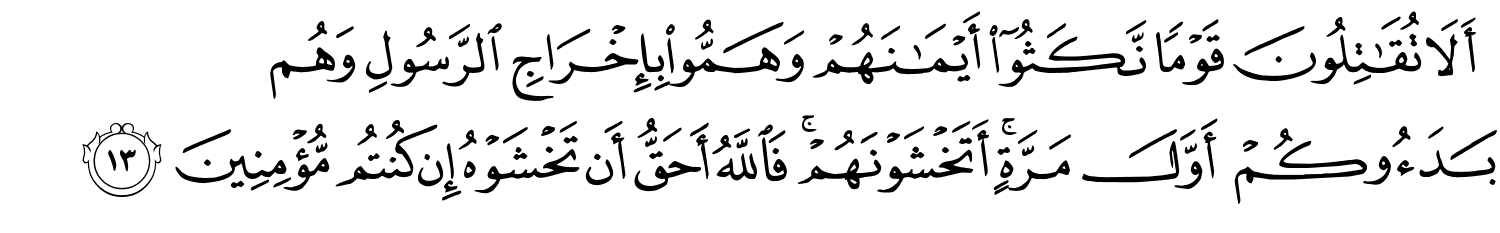 أَلَا تُقَٰتِلُونَ قَوْمًا نَّكَثُوٓا۟ أَيْمَٰنَهُمْ وَهَمُّوا۟ بِإِخْرَاجِ ٱلرَّسُولِ وَهُم
بَدَءُوكُمْ أَوَّلَ مَرَّةٍ ۚ أَتَخْشَوْنَهُمْ ۚ فَٱللَّهُ أَحَقُّ أَن تَخْشَوْهُ إِن كُنتُم مُّؤْمِنِينَ ١٣